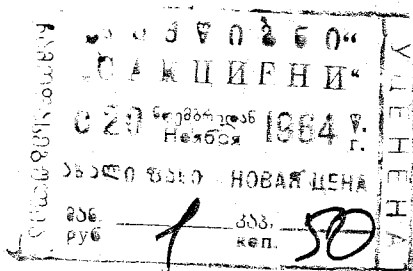 „САКЦИЕНИ“
С 20 ნოემბრიდან Ноября 1964 წ. г.
ახალი ფასი НОВАЯ ЦЕНА
მან. руб 1 კაპ. коп. 50
УЦЕНЕНА